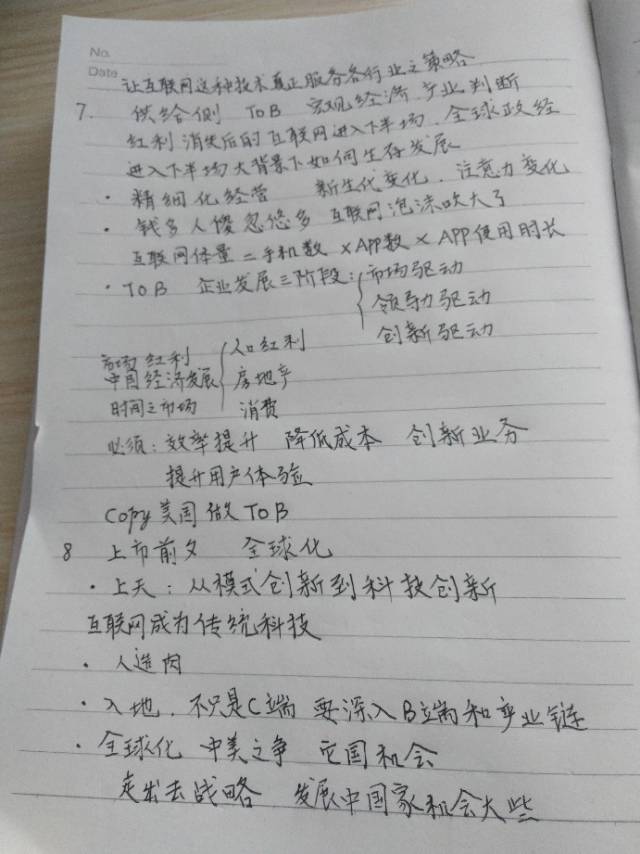 No.
Date 让互联网这种技术真正服务各行业之策略
7. 供给侧 TOB 宏观经济产业判断
红利消失后的互联网进入下半场.全球政经
进入下半场大背景下如何生存发展
· 精细化经营 新生代变化.注意力变化
· 钱多人傻忽悠多 互联网泡沫吹大了
互联网体量=手机数×APP数×APP使用时长
· TOB 企业发展三阶段:市场驱动
领导力驱动
创新驱动
市场红利 人口红利
中国经济发展 房地产
时间之市场 消费
必须:效率提升 降低成本 创新业务
提升用户体验
Copy美国做TOB
8 上市前夕 全球化
· 上天:从模式创新到科技创新
互联网成为传统科技
· 人造肉
· 入地.不只是C端 要深入B端和产业链
· 全球化 中美之争 它国机会
走出去战略 发展中国家机会大些